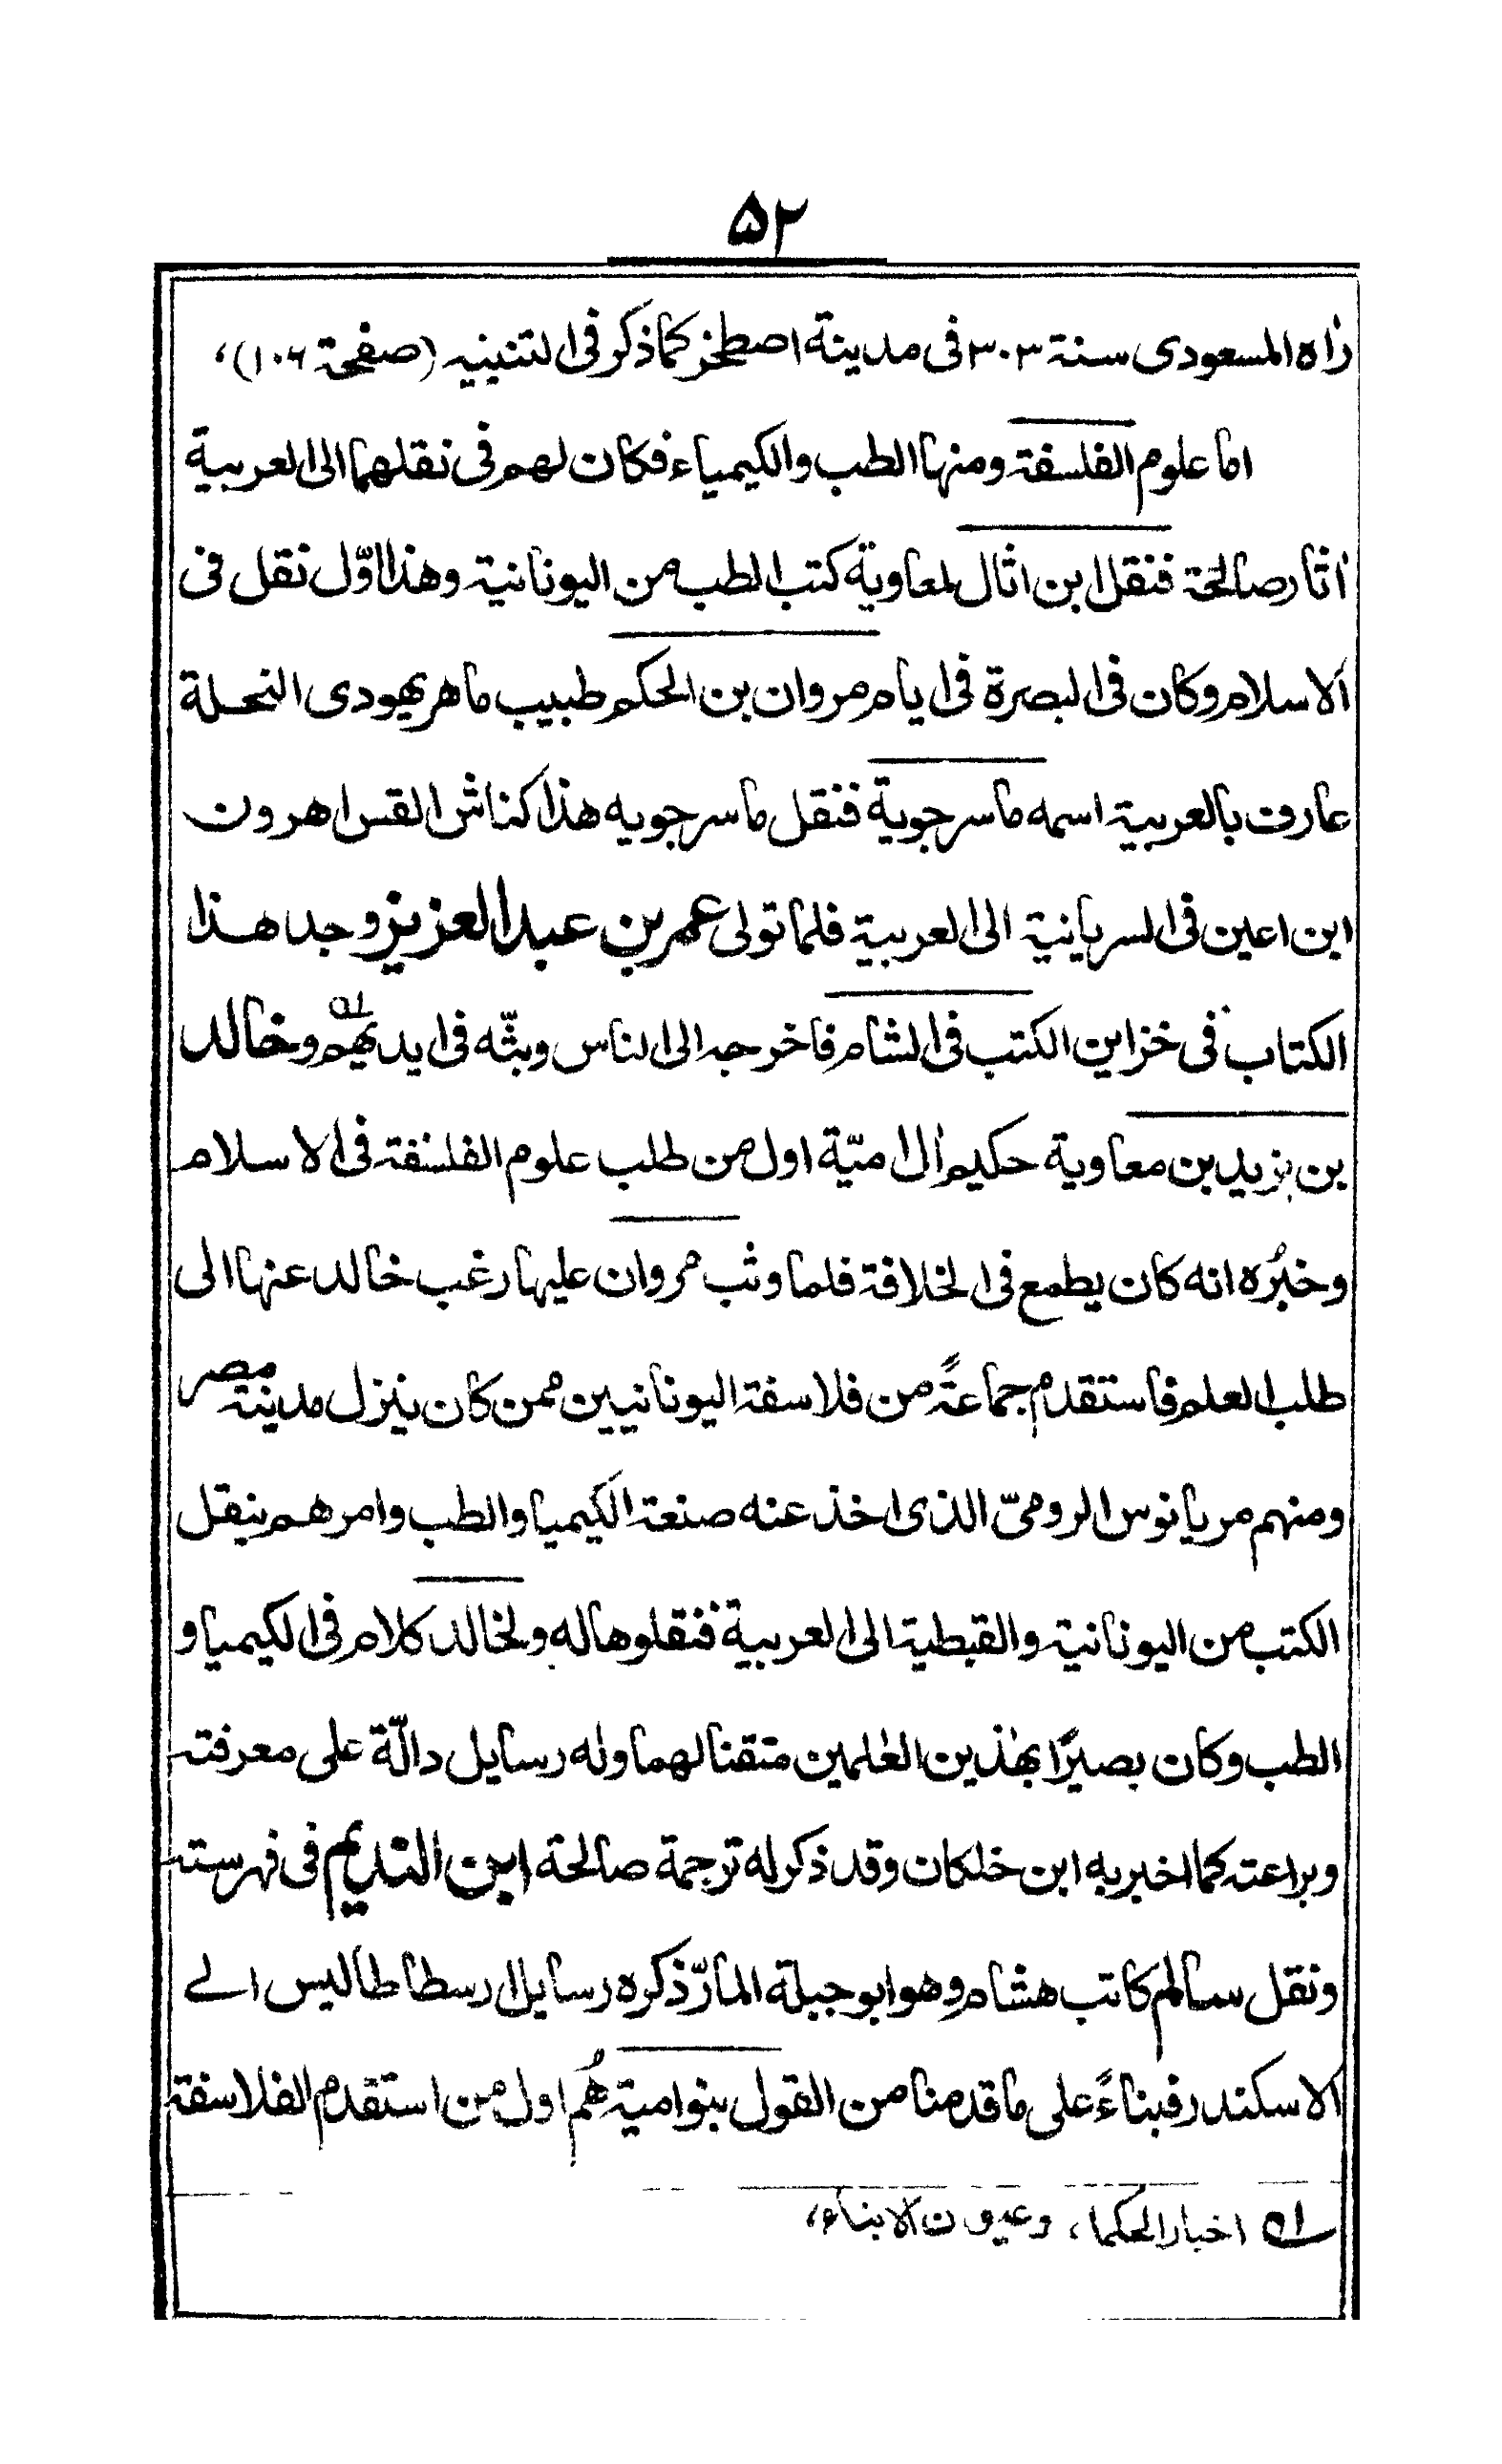 ۵۲
راٰه المسعودی سنة ۳۰۳ فی مدینة اصطخر کما ذکر فی التنبیه (صفحة ۱۰۶)،
اما علوم الفلسفة ومنها الطب والکیمیاء فکان لهم فی نقلهما الی العربیة
اٰثار صالحة فنقل ابن اثال لمعاویة کتب الطب من الیونانیة وهذا اوّل نقل فی
الاسلام وکان فی البصرة فی ایام مروان بن الحکم طبیب ماهر یهودی النحلة
عارف بالعربیة اسمه ماسرجویة فنقل ماسرجویه هذا کناش القس اهرون
ابن اعین فی السریانیة الی العربیة فلما تولی عمر بن عبد العزیز وجد هذا
الکتاب فی خزاین الکتب فی الشام فاخرجه الی الناس وبثّه فی ایدیهم وخالد
بن یزید بن معاویة حکیم اٰل امیّة اول من طلب علوم الفلسفة فی الاسلام
وخبُره انه کان یطمع فی الخلافة فلما وثب مروان علیها رغب خالد عنها الی
طلب العلم فاستقدم جماعةً من فلاسفة الیونانیین ممن کان ینزل مدینة مصر
ومنهم مریانوس الرومیّ الذی اخذ عنه صنعة الکیمیا والطب وامرهم بنقل
الکتب من الیونانیة والقبطیة الی العربیة فنقلوها له ولخالد کلام فی الکیمیا و
الطب وکان بصیرًا بهٰذین العلمین متقنا لهما وله رسایل دالّة علی معرفته
وبراعته کما اخبر به ابن خلکان وقد ذکر له ترجمة صالحة ابن الندیم فی فهرسته
ونقل سالم کاتب هشام وهو ابو جبلة المارّ ذکره رسایل ارسطاطالیس الے
الاسکندر فبناءً علی ما قدمنا من القول بنوامیة هُم اول من استقدم الفلاسفة
لـه اخبار الحکما، وعیون الانباء،